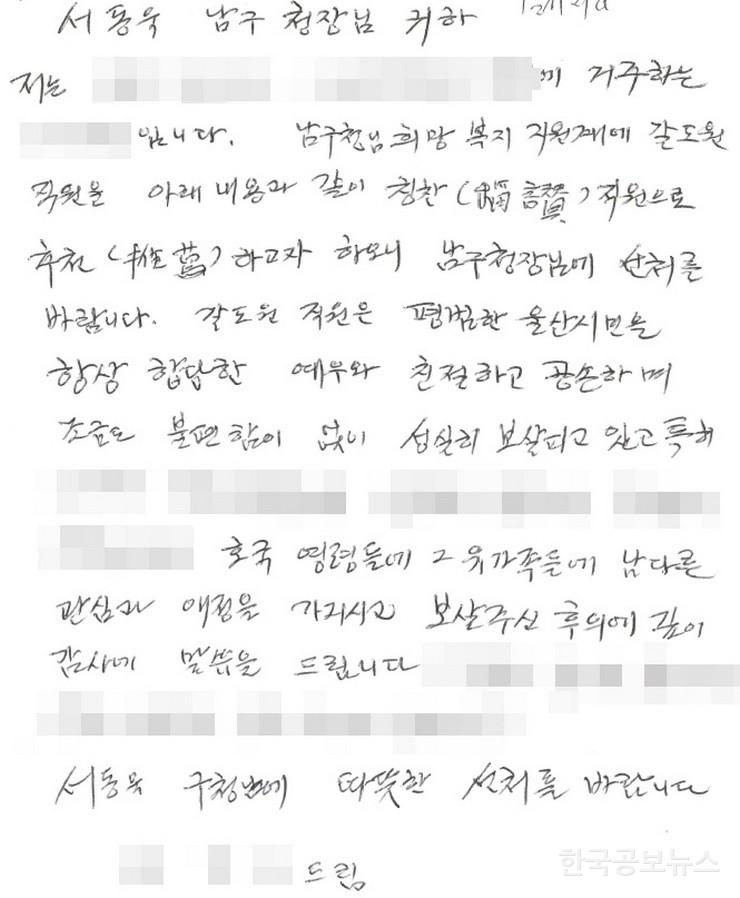 서동욱 남구 청장님 귀하
저는 에 거주하는
입니다. 남구청님 희망 복지 직원계에 갈도원
직원을 아래 내용과 같이 칭찬 (稱讚) 직원으로
추천 (推薦) 하고자 하오니 남구청장님에 선처를
바랍니다. 갈도원 직원은 평범한 울산시민을
항상 합답한 예우와 친절하고 공손하며
조금도 불편함이 없이 성실히 보살피고 있고 특히
호국 영령들에 그 유가족들에 남다른
관심과 애정을 가지시고 보살주신 후의에 깊이
감사에 말씀을 드립니다
서동욱 구청님에 따뜻한 선처를 바랍니다
드림
한국공보뉴스